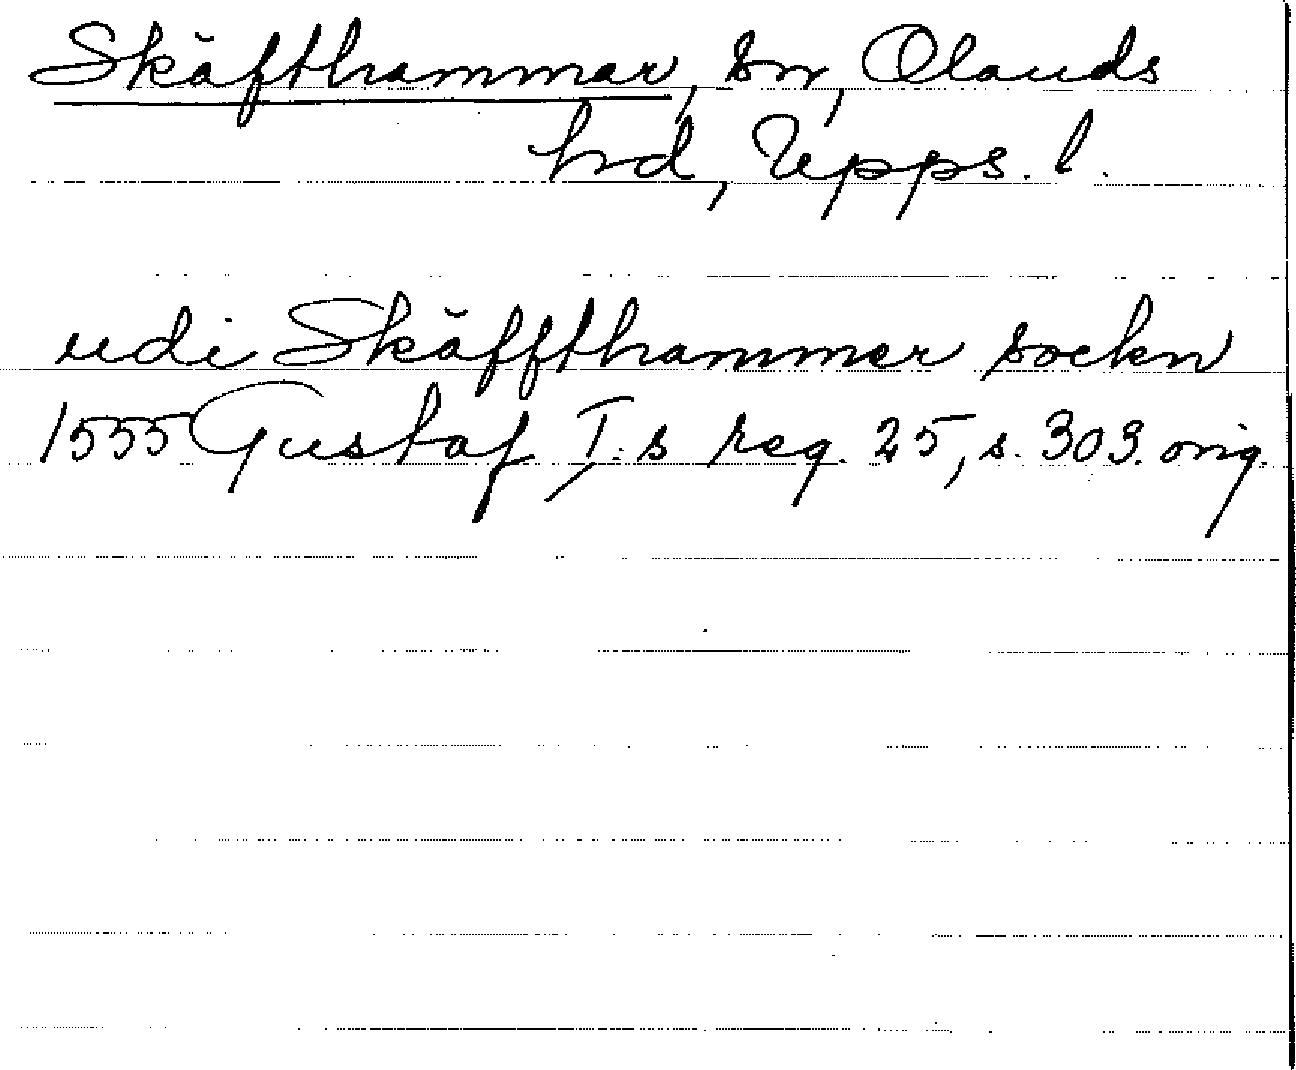 Skäfthammar, sn, Olands
hd, Upps. l.
udi Skäffthammer sockn
1555 Gustaf I:s reg. 25, s. 303. orig.